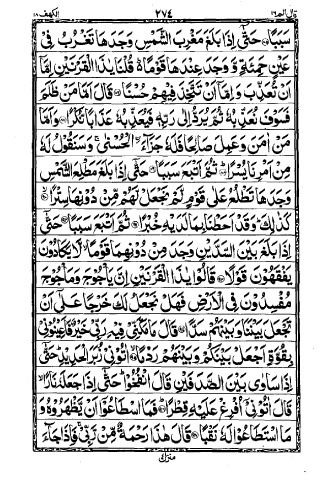 قال الم ١٦ ٢٧٤ الكهف ١٨
سَبَبًا ۝ حَتّٰۤى اِذَا بَلَغَ مَغْرِبَ الشَّمْسِ وَجَدَهَا تَغْرُبُ فِیْ
عَیْنٍ حَمِئَةٍ وَّ وَجَدَ عِنْدَهَا قَوْمًا ۬ؕ قُلْنَا یٰذَا الْقَرْنَیْنِ اِمَّاۤ
اَنْ تُعَذِّبَ وَ اِمَّاۤ اَنْ تَتَّخِذَ فِیْهِمْ حُسْنًا ۝ قَالَ اَمَّا مَنْ ظَلَمَ
فَسَوْفَ نُعَذِّبُهٗ ثُمَّ یُرَدُّ اِلٰی رَبِّهٖ فَیُعَذِّبُهٗ عَذَابًا نُّكْرًا ۝ وَ اَمَّا
مَنْ اٰمَنَ وَ عَمِلَ صَالِحًا فَلَهٗ جَزَآءَ ِ۟الْحُسْنٰی ۚ وَ سَنَقُوْلُ لَهٗ
مِنْ اَمْرِنَا یُسْرًا ۝ ثُمَّ اَتْبَعَ سَبَبًا ۝ حَتّٰۤى اِذَا بَلَغَ مَطْلِعَ الشَّمْسِ
وَجَدَهَا تَطْلُعُ عَلٰی قَوْمٍ لَّمْ نَجْعَلْ لَّهُمْ مِّنْ دُوْنِهَا سِتْرًا ۝
كَذٰلِكَ ؕ وَ قَدْ اَحَطْنَا بِمَا لَدَیْهِ خُبْرًا ۝ ثُمَّ اَتْبَعَ سَبَبًا ۝ حَتّٰۤى
اِذَا بَلَغَ بَیْنَ السَّدَّیْنِ وَجَدَ مِنْ دُوْنِهِمَا قَوْمًا ۙ لَّا یَكَادُوْنَ
یَفْقَهُوْنَ قَوْلًا ۝ قَالُوْا یٰذَا الْقَرْنَیْنِ اِنَّ یَاْجُوْجَ وَ مَاْجُوْجَ
مُفْسِدُوْنَ فِی الْاَرْضِ فَهَلْ نَجْعَلُ لَكَ خَرْجًا عَلٰۤی اَنْ
تَجْعَلَ بَیْنَنَا وَ بَیْنَهُمْ سَدًّا ۝ قَالَ مَا مَكَّنِّیْ فِیْهِ رَبِّیْ خَیْرٌ فَاَعِیْنُوْنِیْ
بِقُوَّةٍ اَجْعَلْ بَیْنَكُمْ وَ بَیْنَهُمْ رَدْمًا ۝ اٰتُوْنِیْ زُبَرَ الْحَدِیْدِ ؕ حَتّٰۤى
اِذَا سَاوٰی بَیْنَ الصَّدَفَیْنِ قَالَ انْفُخُوْا ؕ حَتّٰۤى اِذَا جَعَلَهٗ نَارًا ۙ
قَالَ اٰتُوْنِیْۤ اُفْرِغْ عَلَیْهِ قِطْرًا ۝ فَمَا اسْطَاعُوْۤا اَنْ یَّظْهَرُوْهُ وَ
مَا اسْتَطَاعُوْا لَهٗ نَقْبًا ۝ قَالَ هٰذَا رَحْمَةٌ مِّنْ رَّبِّیْ ۚ فَاِذَا جَآءَ
منزل ٤